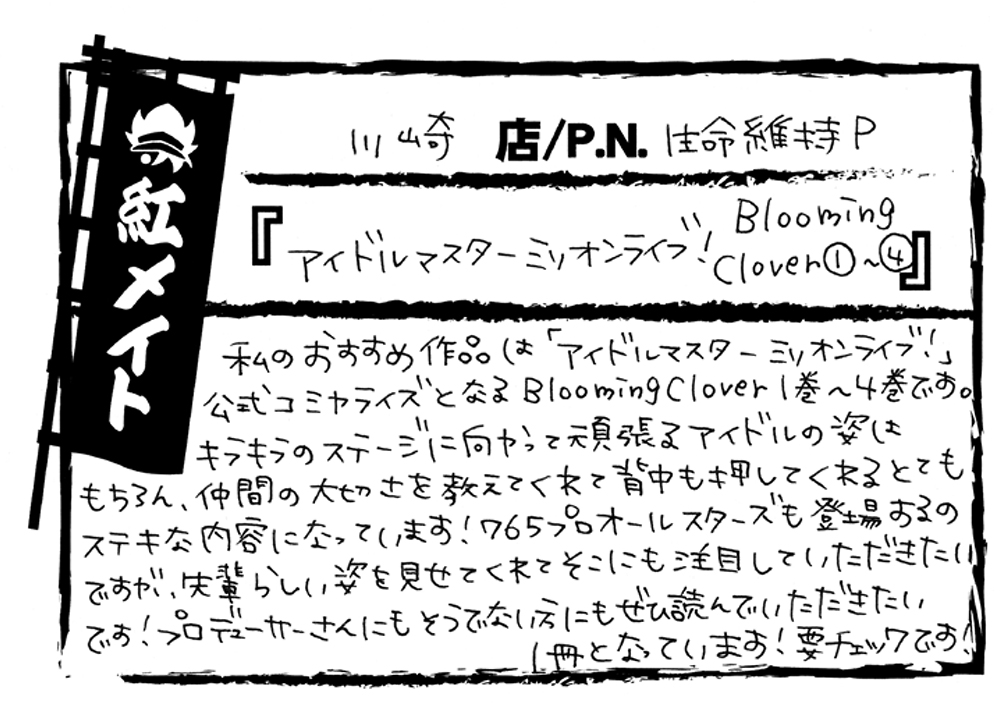 紅メイト
川崎 店/P.N. 生命維持P
『アイドルマスターミリオンライブ! Blooming Clover①~④』
私のおすすめ作品は「アイドルマスター ミリオンライブ!」
公式コミヤライズとなるBlooming Clover 1巻~4巻です。
キラキラのステージに向かって頑張るアイドルの姿は
もちろん、仲間の大切さを教えてくれて背中も押してくれるとても
ステキな内容になっています!765プロオールスターズも登場するの
ですが、先輩らしい姿を見せてくれてそこにも注目していただきたい
です!プロデューサーさんにもそうでない方にもぜひ読んでいただきたい
1冊となっています!要チェックです!